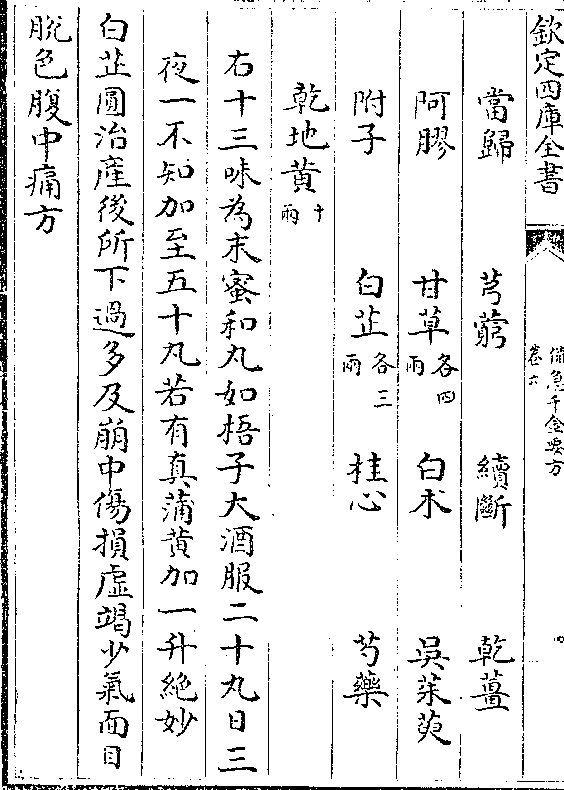 欽定四庫全書
備急千金要方
卷六
當歸 芎藭 續斷 乾薑
阿膠 甘草各四兩 白朮 吳茱萸
附子 白芷各三兩 桂心 芍藥
乾地黃十兩
右十三味為末蜜和丸如梧子大酒服二十丸日三
夜一不知加至五十丸若有真蒲黃加一升絕妙
白芷圓治產後所下過多及崩中傷損虛竭少氣面目
脫色腹中痛方